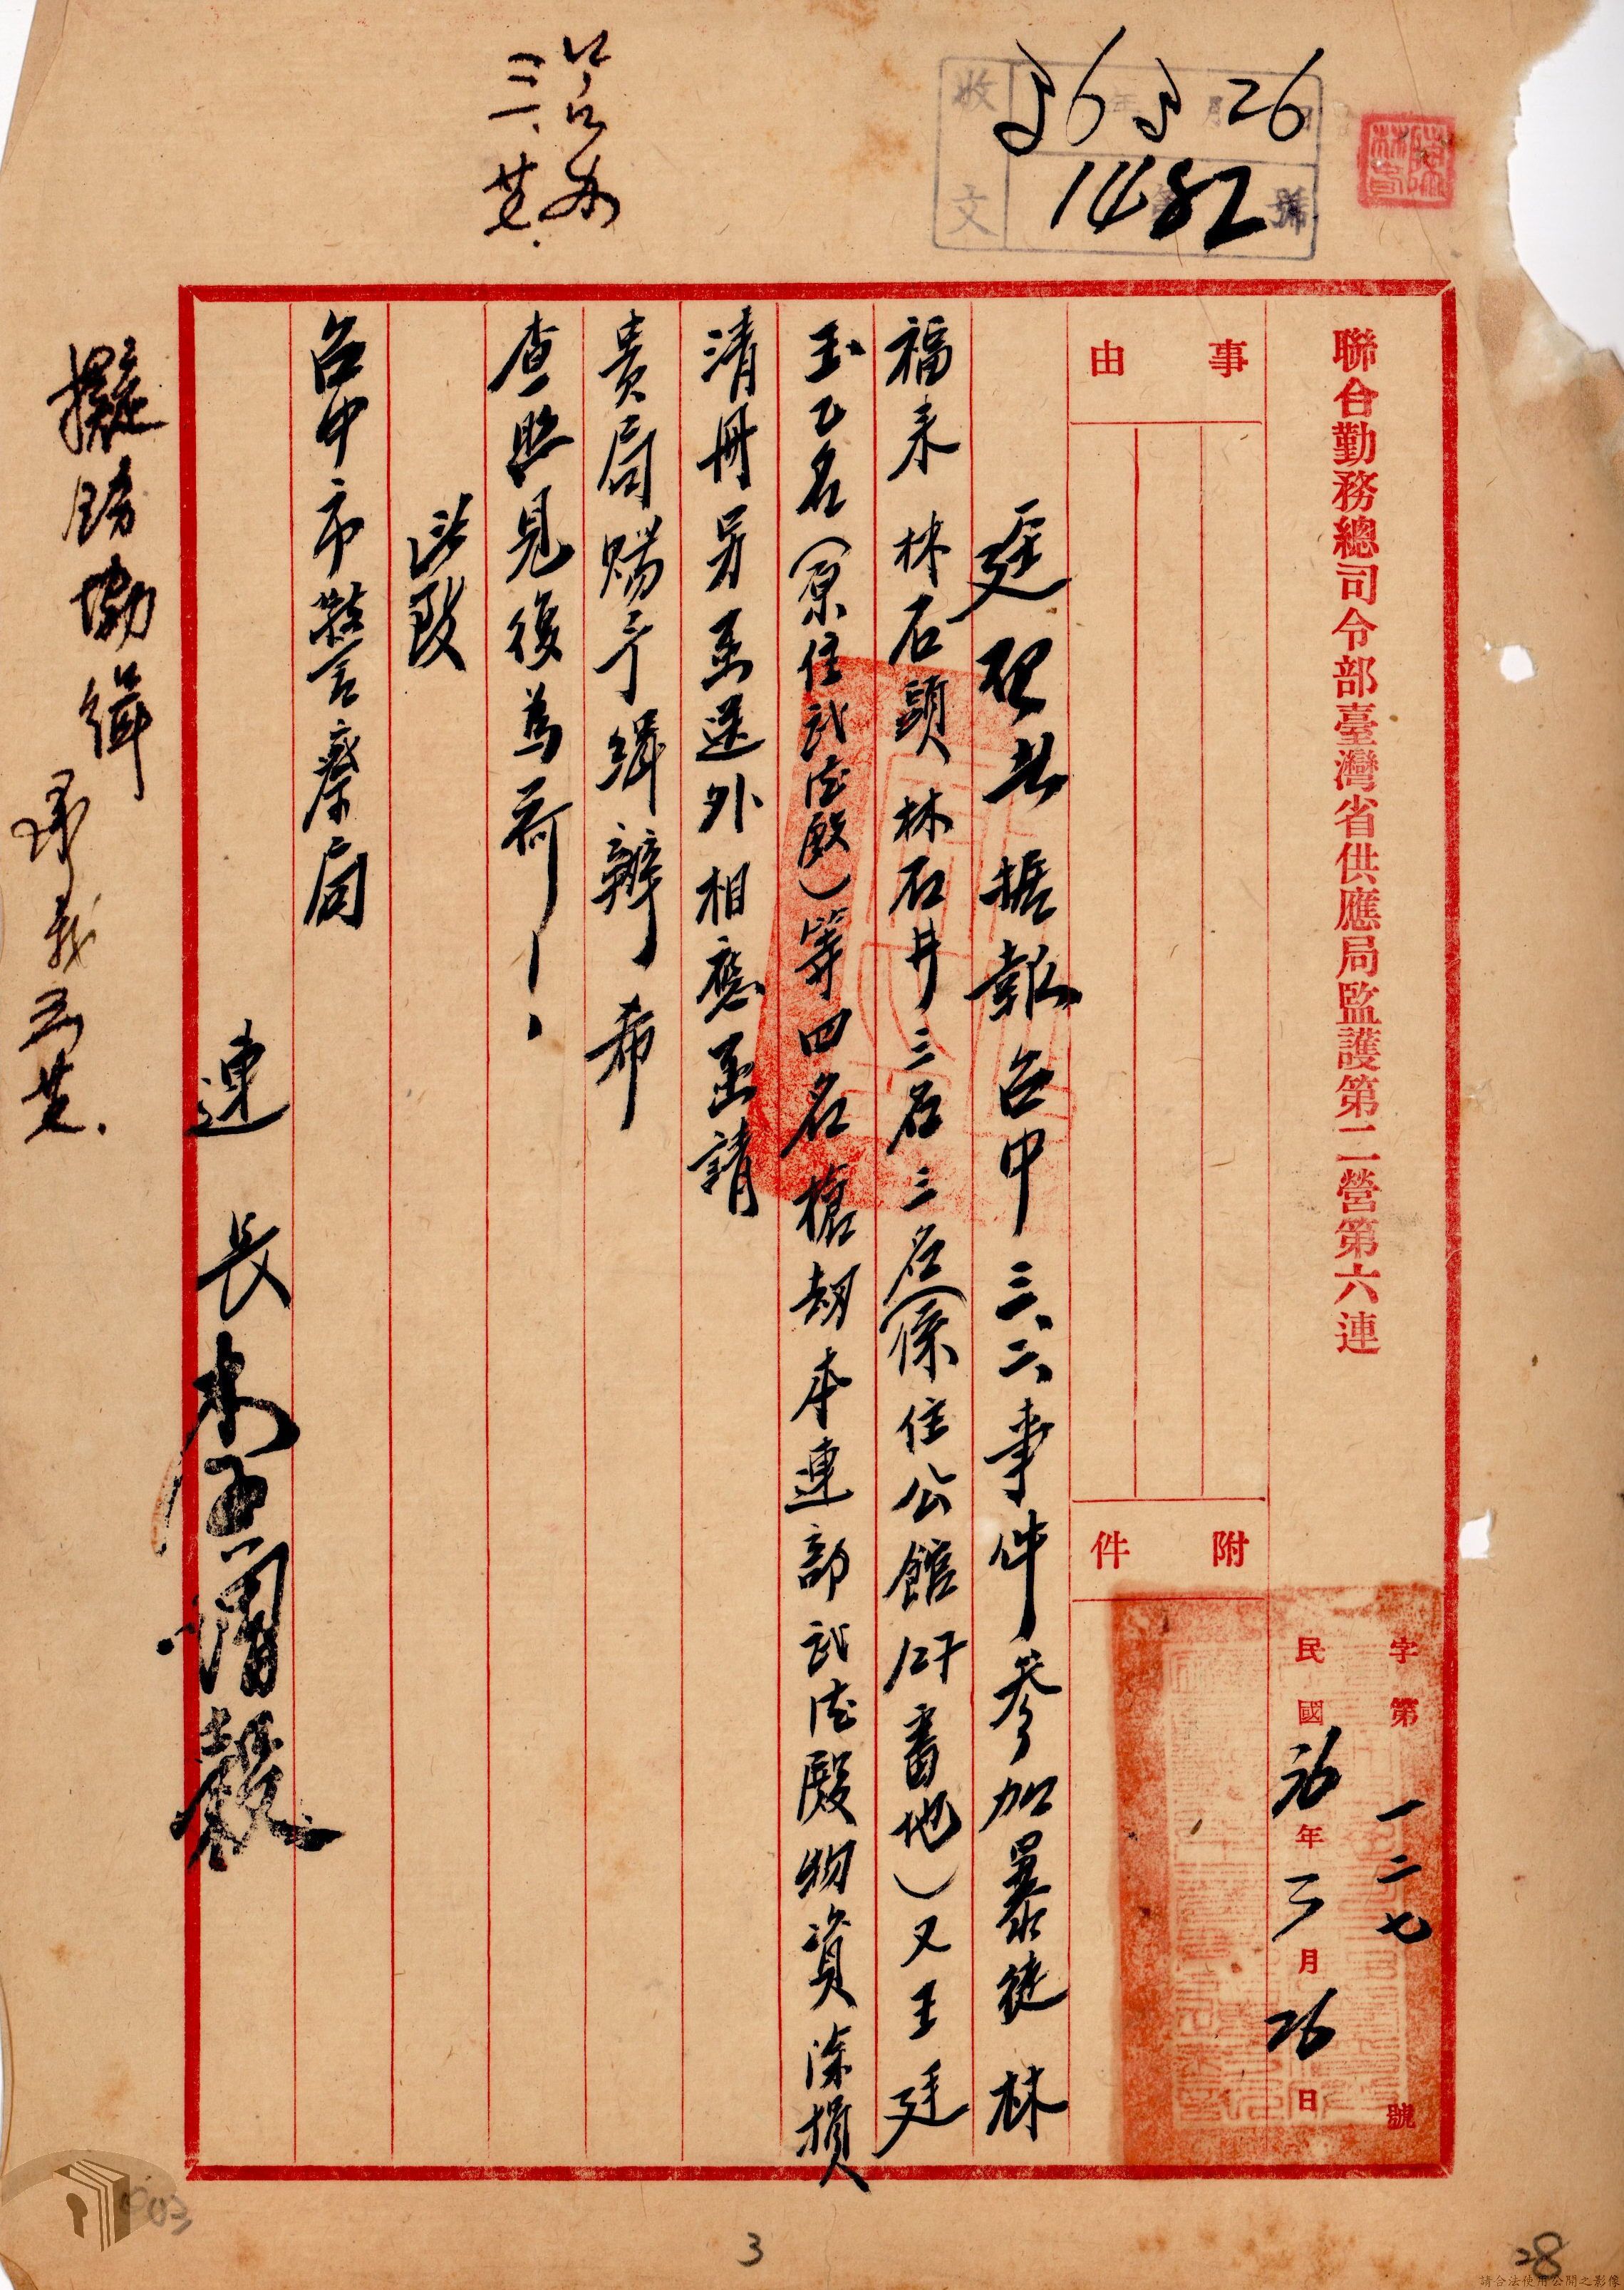 收文
36年3月26日
1482號
聯合勤務總司令部臺灣省供應局監護第二營第六連
字第一二七號
民國卅六年三月26日
事由
附件
逕啓者據報台中三、二、事件參加暴徒林
福来 林石頭 林石井三名三名(係住公館127番地)又王廷
玉乙名(原住武德殿)等四名搶刧本連部武德殿物資除損
清册另函送外相應函請
貴局賜予緝辦希
查照見復為荷
此致
台中市警察局
連長
擬飭協緝
3
28
請合法使用公開之影像